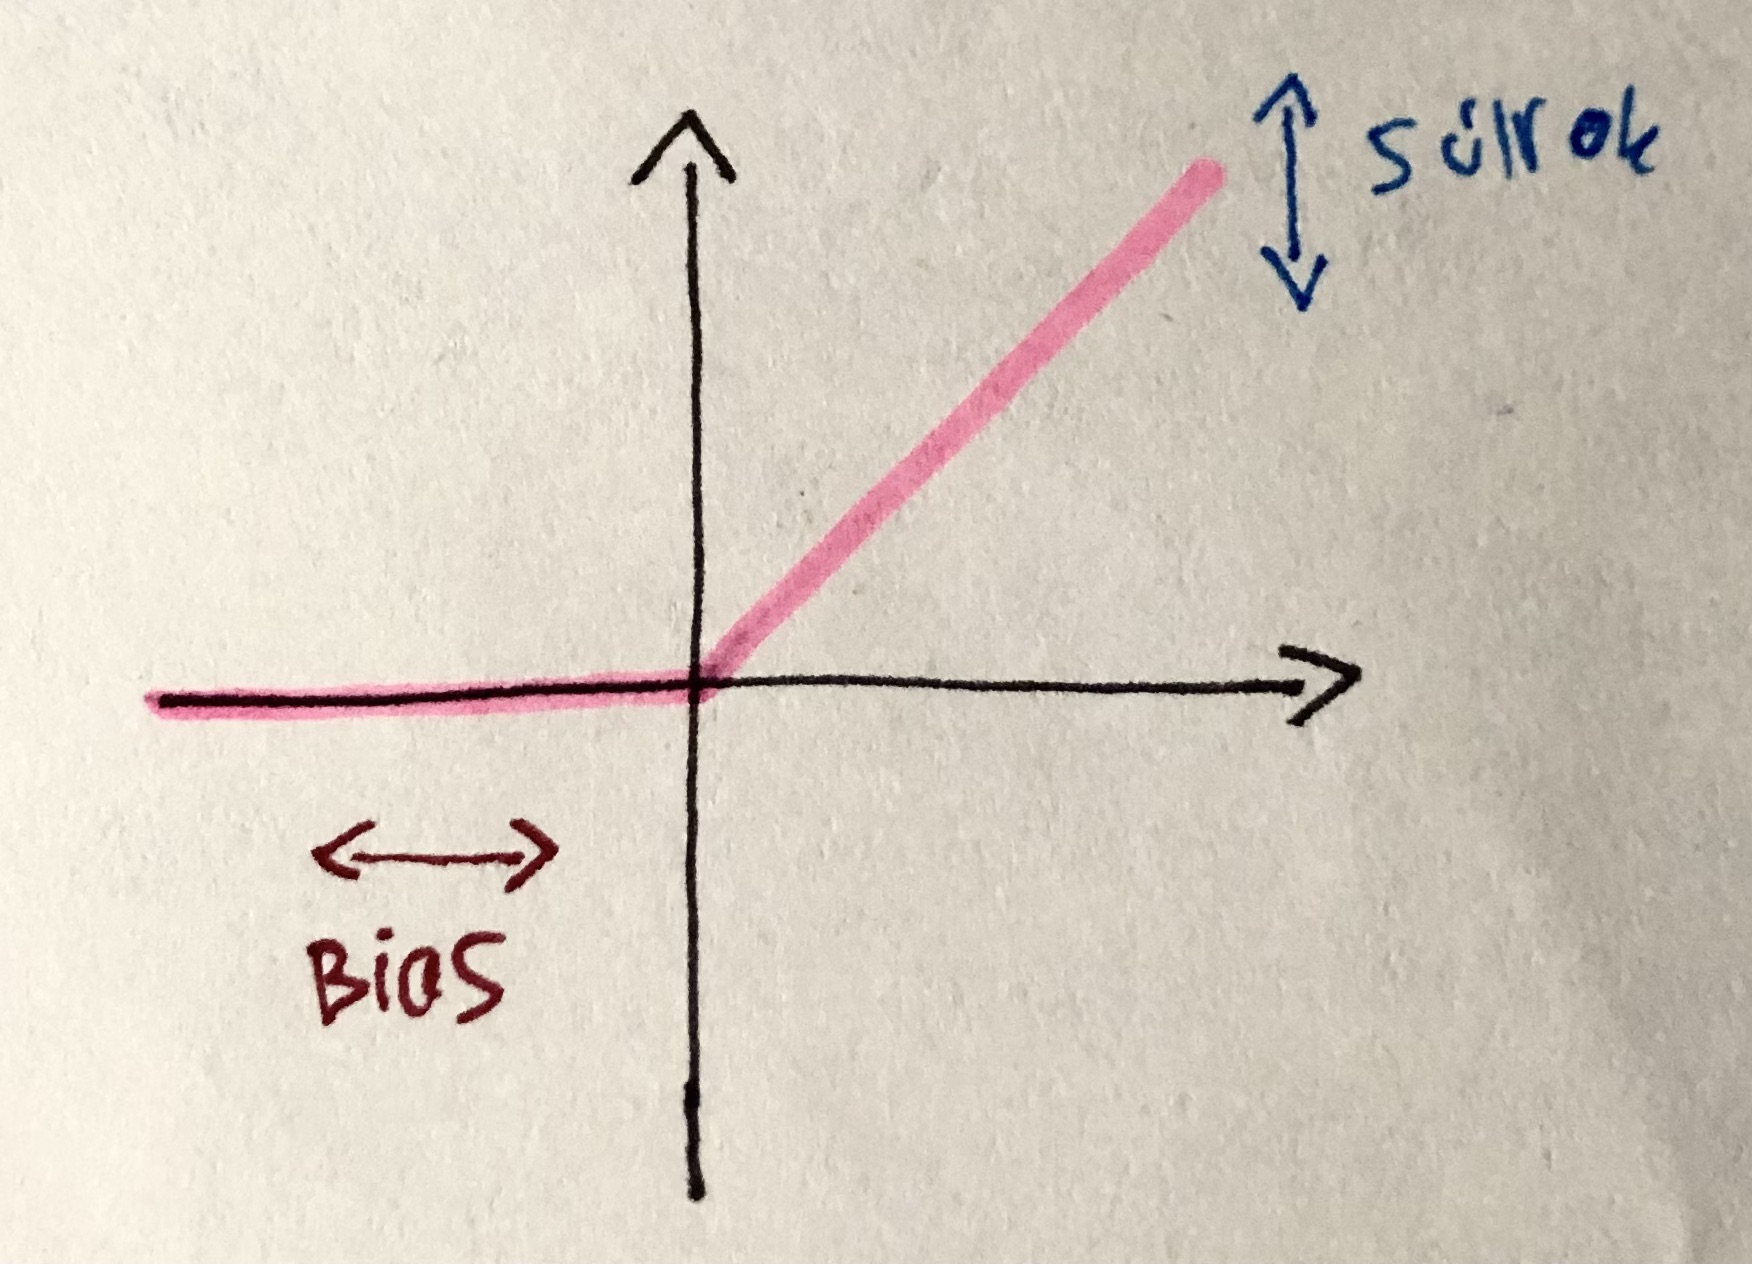 súlyok
Bias